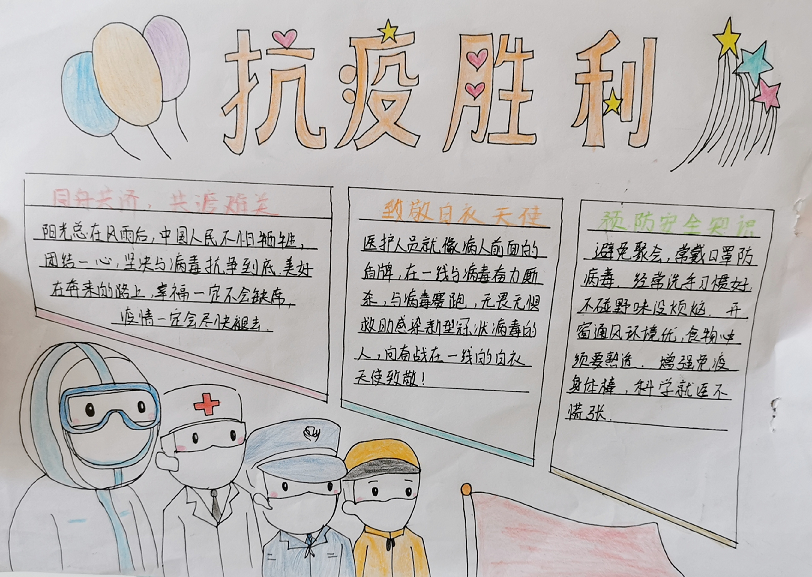 抗疫胜利
同舟共济，共渡难关
阳光总在风雨后，中国人民不怕牺牲，
团结一心，坚决与病毒抗争到底，美好
在奔来的路上，幸福一定不会缺席，
疫情一定会尽快褪去．
致敬白衣天使
医护人员就像病人前面的
盾牌，在一线与病毒奋力厮
杀，与病毒赛跑，无畏无惧
救助感染新型冠状病毒的
人，向奋战在一线的白衣
天使致敬！
预防安全知识
避免聚会，常戴口罩防
病毒，经常洗手习惯好
不碰野味没烦恼，开
窗通风环境优，食物必
须要熟活．增强免疫
身体棒，科学就医不
慌张．